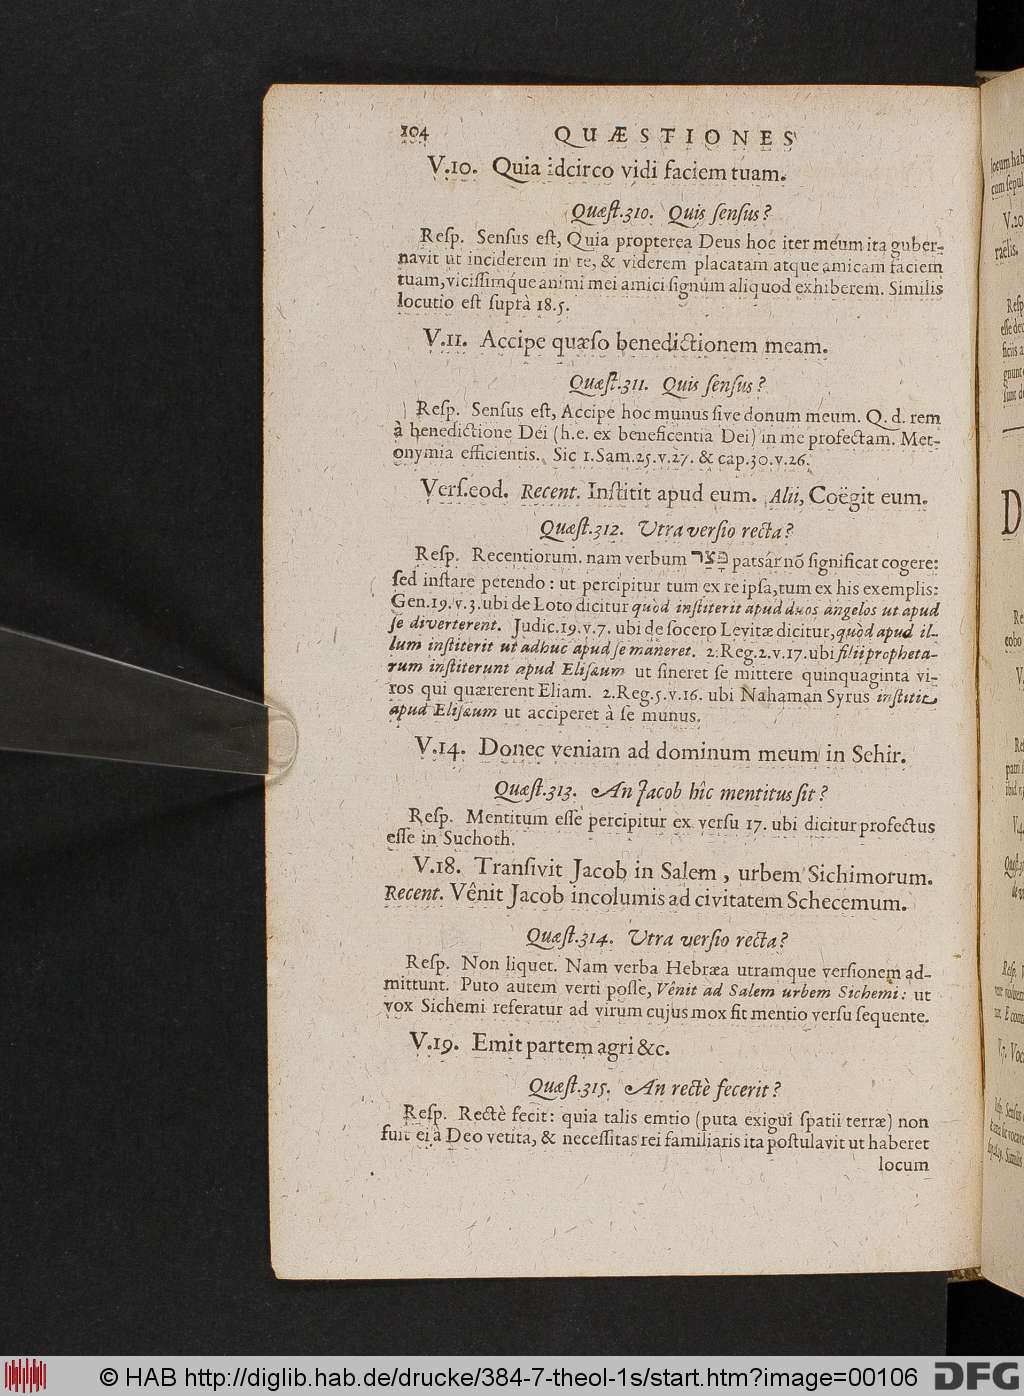 104 QUÆSTIONES
V.10. Quia idcirco vidi faciem tuam.
Quæſt.310. Quis ſenſus?
Reſp. Senſus eſt, Quia propterea Deus hoc iter meum ita guber-
navit ut inciderem in te, & viderem placatam atque amicam faciem
tuam, viciſſimque animi mei amici ſignum aliquod exhiberem. Similis
locutio eſt ſuprà 18.5.
V.11. Accipe quæſo benedictionem meam.
Quæſt.311. Quis ſenſus?
Reſp. Senſus eſt, Accipe hoc munus ſive donum meum. Q. d. rem
à benedictione Dei (h.e. ex beneficentia Dei) in me profectam. Met-
onymia efficientis. Sic 1.Sam.25.v.27. & cap.30.v.26.
Verſ.eod. Recent. Inſtitit apud eum. Alii, Coëgit eum.
Quæſt.312. Utra verſio recta?
Reſp. Recentiorum. nam verbum פָּצַר patsár nō ſignificat cogere:
ſed inſtare petendo: ut percipitur tum ex re ipſa, tum ex his exemplis:
Gen.19.v.3. ubi de Loto dicitur quòd inſtiterit apud duos angelos ut apud
ſe diverterent. Judic.19.v.7. ubi de ſocero Levitæ dicitur, quòd apud il-
lum inſtiterit ut adhuc apud ſe maneret. 2.Reg.2.v.17. ubi filii propheta-
rum inſtiterunt apud Eliſæum ut ſineret ſe mittere quinquaginta vi-
ros qui quærerent Eliam. 2.Reg.5.v.16. ubi Nahaman Syrus inſtitit
apud Eliſæum ut acciperet à ſe munus.
V.14. Donec veniam ad dominum meum in Sehir.
Quæſt.313. An Jacob hîc mentitus ſit?
Reſp. Mentitum eſſe percipitur ex verſu 17. ubi dicitur profectus
eſſe in Suchoth.
V.18. Tranſivit Jacob in Salem, urbem Sichimorum.
Recent. Vênit Jacob incolumis ad civitatem Schecemum.
Quæſt.314. Utra verſio recta?
Reſp. Non liquet. Nam verba Hebræa utramque verſionem ad-
mittunt. Puto autem verti poſſe, Vênit ad Salem urbem Sichemi: ut
vox Sichemi referatur ad virum cujus mox fit mentio verſu ſequente.
V.19. Emit partem agri &c.
Quæſt.315. An rectè fecerit?
Reſp. Rectè fecit: quia talis emtio (puta exigui ſpatii terræ) non
fuit ei à Deo vetita, & neceſſitas rei familiaris ita poſtulavit ut haberet
locum
© HAB http://diglib.hab.de/drucke/384-7-theol-1s/start.htm?image=00106
DFG